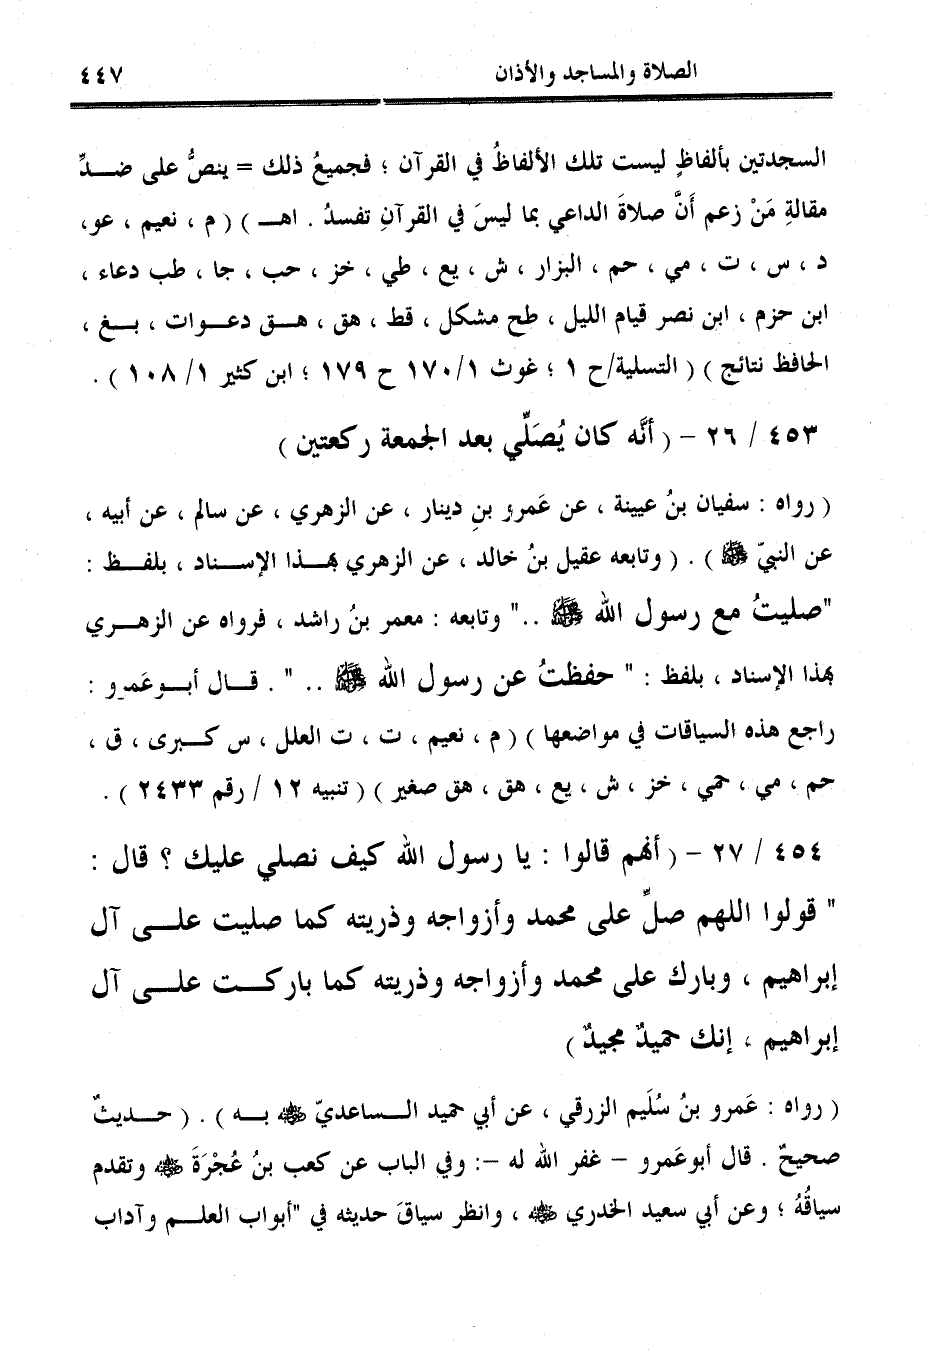 الصلاة والمساجد والأذان ٤٤٧
السجدتين بألفاظٍ ليست تلك الألفاظُ في القرآن ؛ فجميعُ ذلك = ينصُّ على ضـــدِّ
مقالةِ مَنْ زعم أَنَّ صلاةَ الداعي بما ليسَ في القرآنِ تفسدُ . اهـــ ) ( م ، نعيم ، عو،
د ، س ، ت ، مي ، حم ، البزار ، ش ، يع ، طي ، خز ، حب ، جا ، طب دعاء ،
ابن حزم ، ابن نصر قيام الليل ، طح مشكل ، قط ، هق ، هـــق دعـــوات ، بـــغ ،
الحافظ نتائج ) ( التسلية/ح ١ ؛ غوث ١٧٠/١ ح ١٧٩ ؛ ابن كثير ١/ ١٠٨ ) .
٤٥٣ / ٢٦ – ( أنَّه كان يُصَلِّي بعد الجمعة ركعتين )
( رواه : سفيان بنُ عيينة ، عن عَمرو بنِ دينار ، عن الزهري ، عن سالم ، عن أبيه ،
عن النبيّ ﷺ ) . ( وتابعه عقيل بنُ خالد ، عن الزهري بهـــذا الإســـناد ، بلفـــظ :
"صليتُ مع رسول الله ﷺ .." وتابعه : معمر بنُ راشد ، فرواه عن الزهـــري
بهذا الإسناد ، بلفظ : " حفظتُ عن رسول الله ﷺ .. " . قـــال أبـــو عَمرو :
راجع هذه السياقات في مواضعها ) ( م ، نعيم ، ت ، ت العلل ، س كـــبرى ، ق ،
حم ، مي ، حمي ، خز ، ش ، يع ، هق ، هق صغير ) ( تنبيه ١٢ / رقم ٢٤٣٣ ) .
٤٥٤ / ٢٧ – ( أنهم قالوا : يا رسول الله كيف نصلي عليك ؟ قال :
" قولوا اللهم صلِّ على محمد وأزواجه وذريته كما صليت علـــى آل
إبراهيم ، وبارك على محمد وأزواجه وذريته كما باركـــت علـــى آل
إبراهيم ، إنك حميدٌ مجيدٌ )
( رواه : عَمرو بنُ سُلَيم الزرقي ، عن أبي حميد الـــساعديّ ﷺ بـــه ) . ( حـــديثٌ
صحيحٌ . قال أبو عَمرو – غفر الله له –: وفي الباب عن كعب بنُ عُجْرَةَ ﷺ وتقدم
سياقُهُ ؛ وعن أبي سعيد الخدري ﷺ ، وانظر سياقَ حديثه في "أبواب العلـــم وآداب